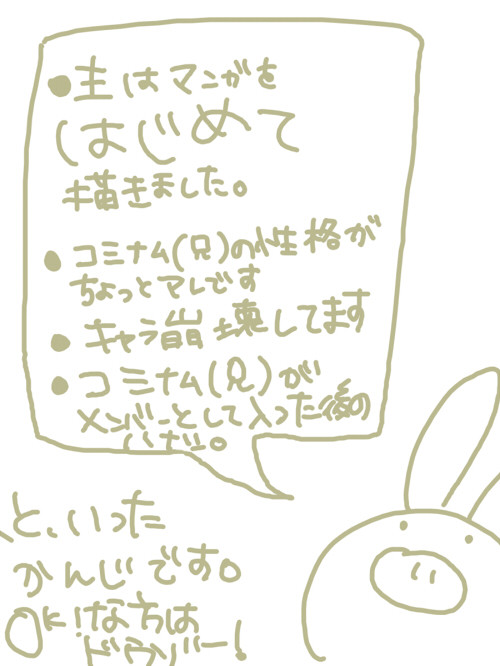 ●主はマンガを
はじめて
描きました。
●コミナム(兄)の性格が
ちょっとアレです
●キャラ崩壊してます
●コミナム(兄)が
メンバーとして入った後の
と、いった
かんじです。
OK!な方は
ドウゾー!